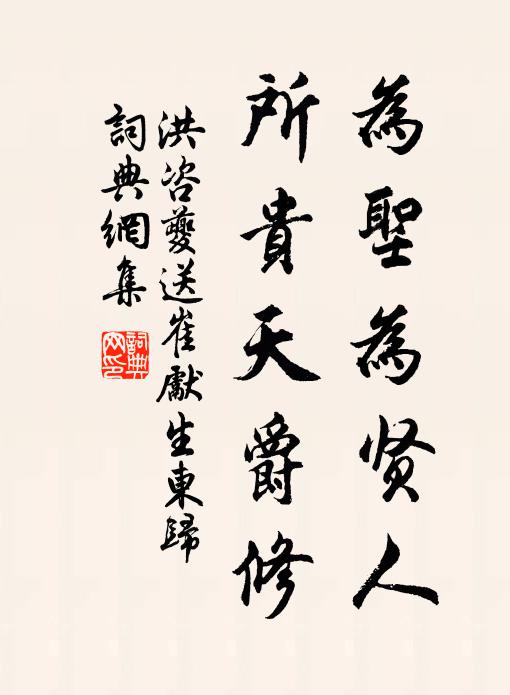 為聖為贤人
所貴天爵修
洪咨夔送崔獻生東歸
詞典網集
詞典
网印